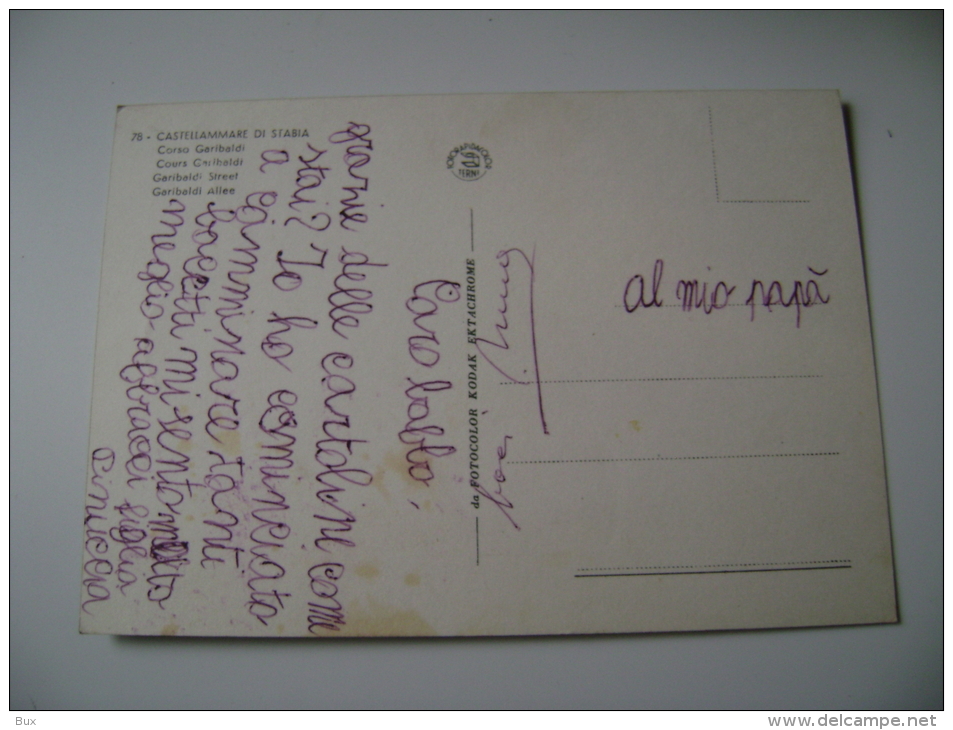 78 - CASTELLAMMARE DI STABIA
Corso Garibaldi
Cours Garibaldi
Garibaldi Street
Garibaldi Allee
Caro babbo,
grazie delle cartoline come
stai? Io ho cominciato
a camminare tanti
bacetti mi sento molto
meglio. abbracci figlia
Pinuccia
TERNI
da FOTOCOLOR KODAK EKTACHROME
al mio papà
Bux
www.delcampe.net